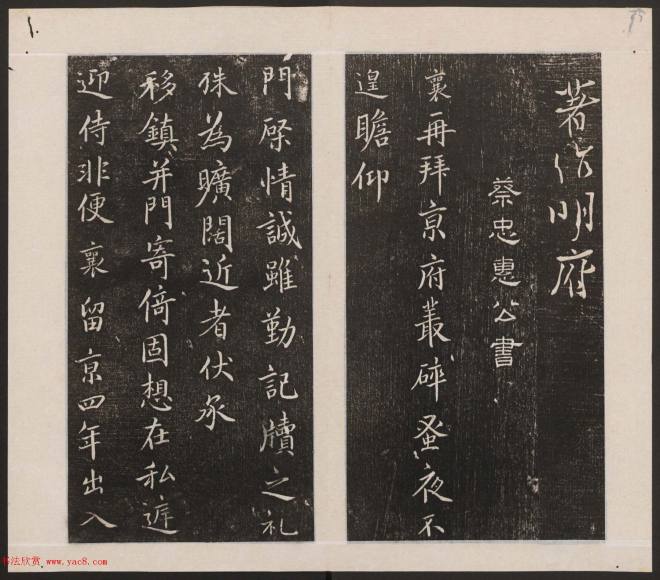 著作明府
蔡忠惠公書
襄再拜京府叢碎蚤夜不
遑瞻仰
門屏情誠雖勤記牘之礼
殊為曠闊近者伏承
移鎮并門寄倚固想在私遽
迎侍非便襄留京四年出入
书法欣赏 www.yac8.com